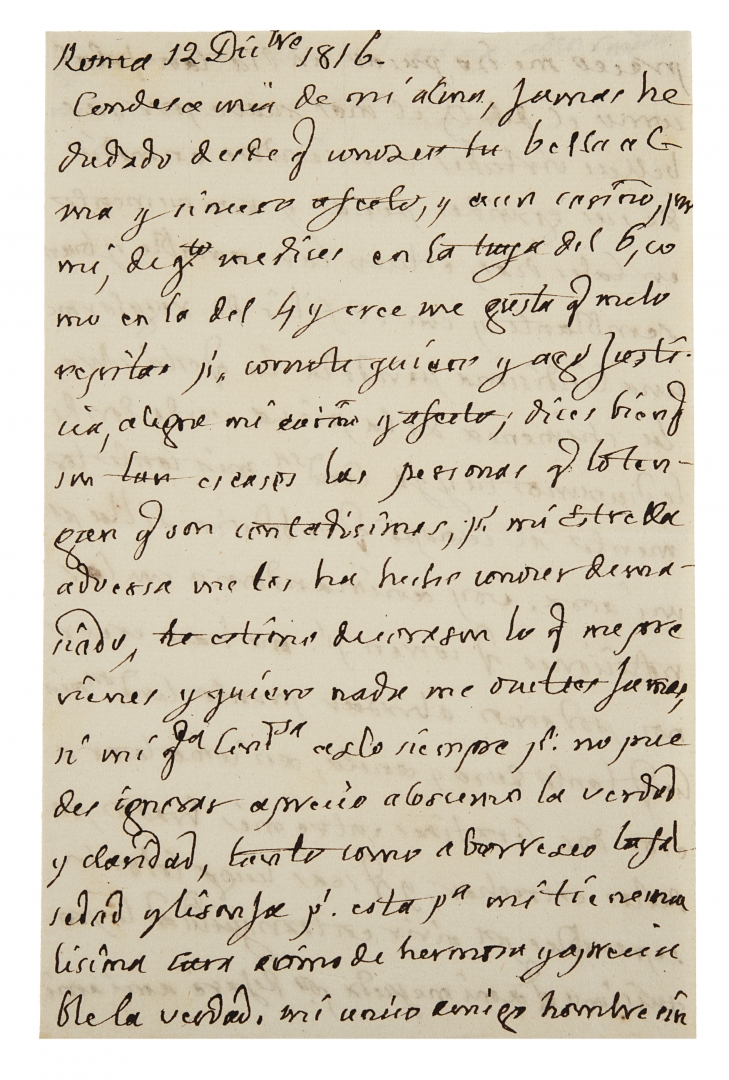 Roma 12 Dii.bre 1816.
Condesa mia de mi alma, Jamas he
dudado desde q conozco tu bella al-
ma y sincero afecto, y aun cariño, por
mi, de q.to me dices en la tuya del 6, co
mo en la del 4 y cree me gusta q melo
repitas p.r como te quiero y ago Justi-
cia, alegra mi cariño y afecto; dices bien q
son tan escasos las personas q lo ten-
gan q son contadisimas, p.r mi Estrella
adversa me los ha hecho conocer dema-
siado, te estimo de corason lo q me pre
vienes y quiero nada me ocultes Jamas,
si mi q.da Cond.sa aslo siempre p.r no pue
des ignorar aprecio a lo sumo la verdad
y claridad, tanto como aborresco la fal
sedad y lisonJa p.r esta p.a mi tiene ma
lisima cara como de hermosa y aprecia
ble la verdad. mi unico amigo hombre sin